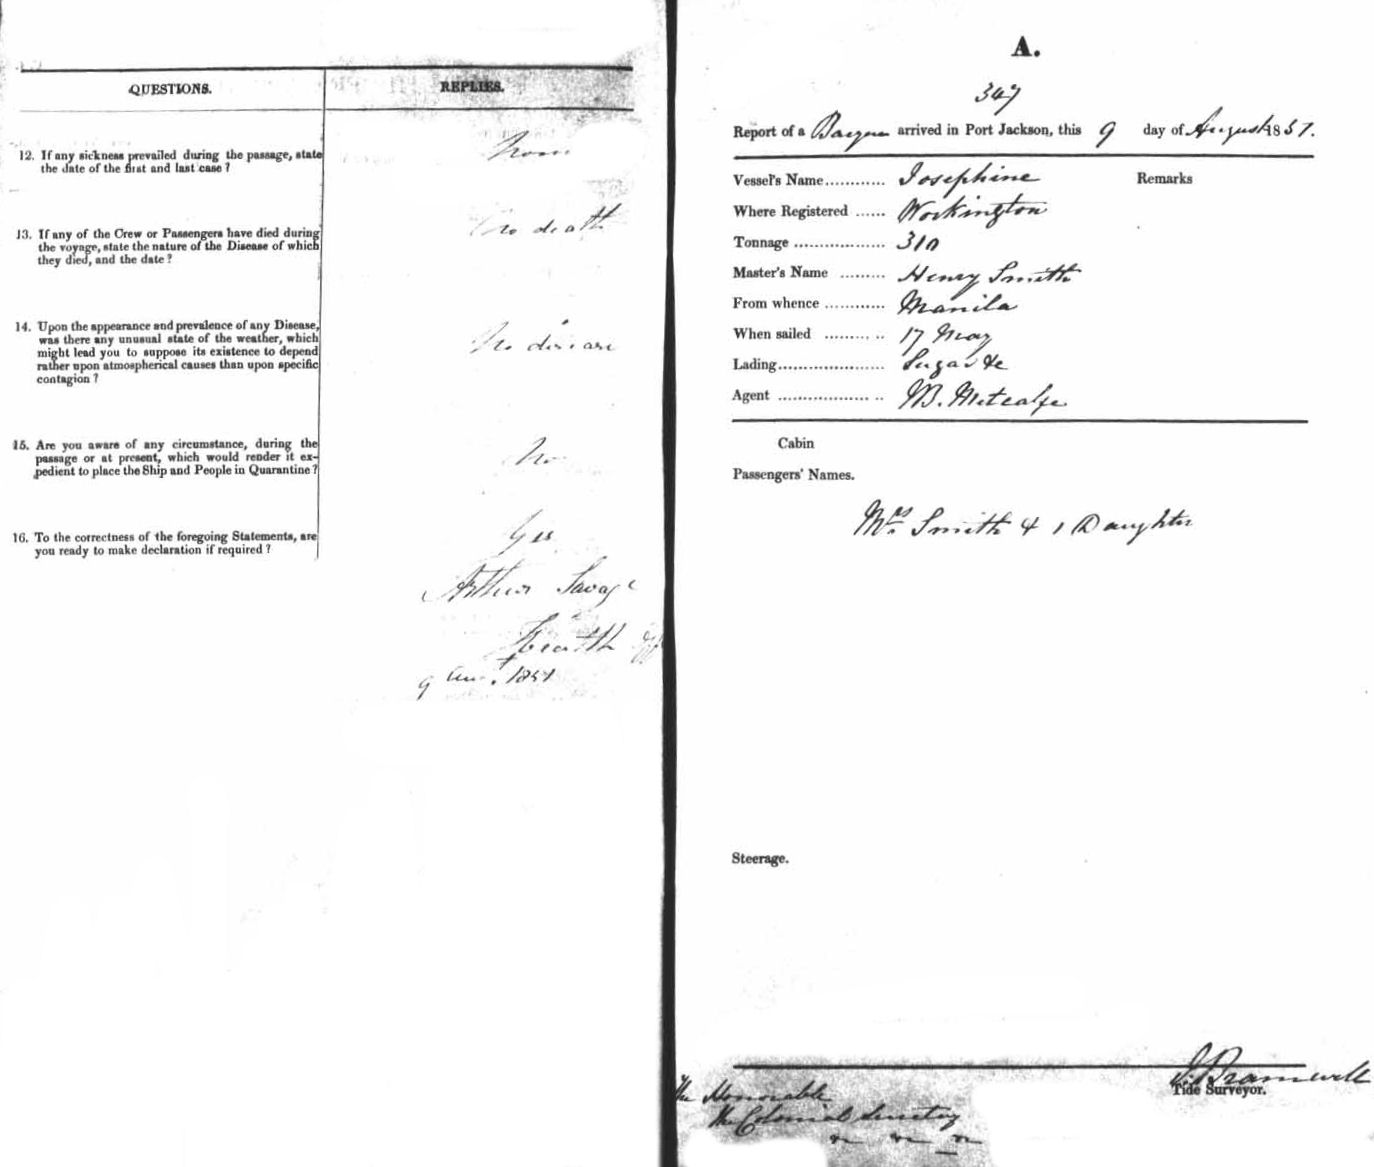 QUESTIONS.
REPLIES.
12. If any sickness prevailed during the passage, state
the date of the first and last case ?
None
13. If any of the Crew or Passengers have died during
the voyage, state the nature of the Disease of which
they died, and the date ?
No death
14. Upon the appearance and prevalence of any Disease,
was there any unusual state of the weather, which
might lead you to suppose its existence to depend
rather upon atmospherical causes than upon specific
contagion ?
No disease
15. Are you aware of any circumstance, during the
passage or at present, which would render it ex-
pedient to place the Ship and People in Quarantine ?
No
16. To the correctness of the foregoing Statements, are
you ready to make declaration if required ?
Yes
Arthur Savage
Health
9 Aug. 1851
A.
347
Report of a Barque arrived in Port Jackson, this 9 day of August 1851.
Vessel's Name............ Josephine
Remarks
Where Registered ...... Workington
Tonnage .................. 310
Master's Name ......... Henry Smith
From whence ............ Manila
When sailed ......... .. 17 May
Lading..................... Sugar &c
Agent .................. .. Metcalfe
Cabin
Passengers' Names.
Mrs. Smith & 1 Daughter
Steerage.
J. Bramwell
Tide Surveyor.
The Honorable
The Colonial Secretary